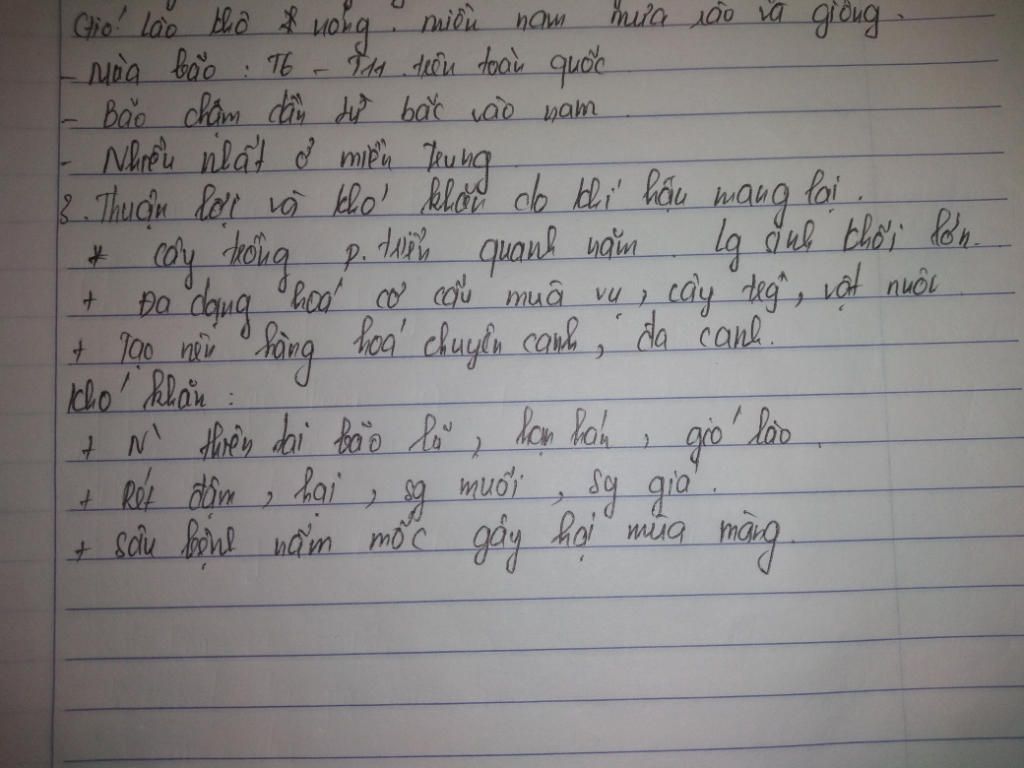 Gió lào khô * nóng. miền nam mưa rào và giông.
- Mùa bão: T6 - T11 trên toàn quốc
- Bão chậm dần từ bắc vào nam
- Nhiều nhất ở miền trung
3. Thuận lợi và khó khăn do khí hậu mang lại.
* cây trồng p. triển quanh năm lg sinh khối lớn.
+ Đa dạng hoá cơ cấu mùa vụ, cây trg, vật nuôi
+ Tạo nên hàng hoá chuyên canh, đa canh.
khó khăn:
+ N` thiên tai bão lũ, hạn hán, gió lào.
+ Rét đậm, hại, sg muối, sg giá.
+ sâu bệnh nấm mốc gây hại mùa màng.